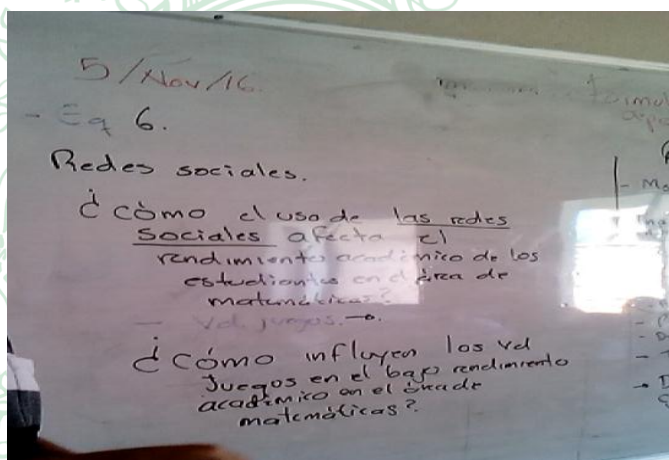 5/Nov/16.
- Eq 6.
Redes sociales.
¿cómo el uso de las redes
sociales afecta el
rendimiento académico de los
estudiantes en el área de
matemáticas?
- Vd. juegos. →.
¿cómo influyen los vd
Juegos en el bajo rendimiento
académico en el área de
matemáticas?